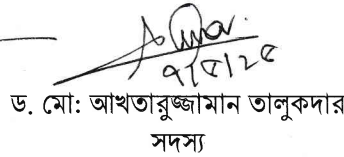 ৭/৫/২৫
ড. মো: আখতারুজ্জামান তালুকদার
সদস্য